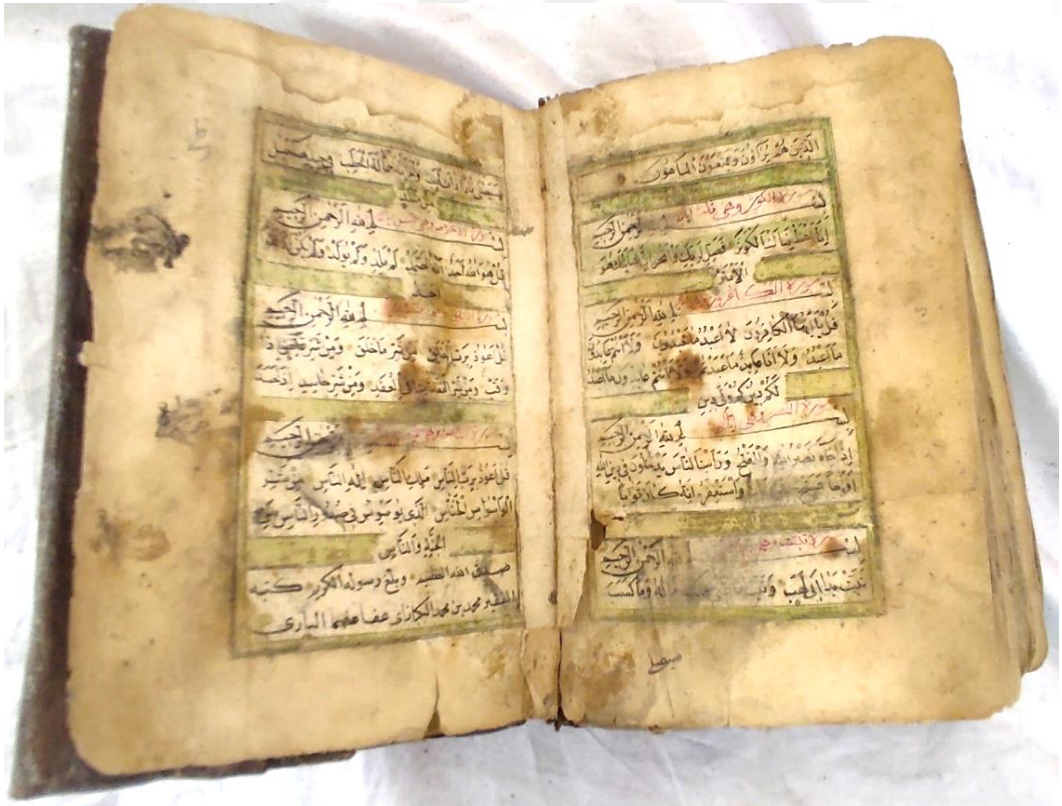 الذين هم يراؤن ويمنعون الماعون
سورة الكوثر وهي ثلث اية
بسم الله الرحمن الرحيم
انا اعطيناك الكوثر فصل لربك وانحر ان شانئك هو
الابتر
سورة الكافرون
بسم الله الرحمن الرحيم
قل يا ايها الكافرون لا اعبد ما تعبدون ولا انتم عابدون
ما اعبد ولا انا عابد ما عبدتم ولا انتم عابدون ما اعبد
لكم دينكم ولي دين
سورة النصر وهي
بسم الله الرحمن الرحيم
اذا جاء نصر الله والفتح ورأيت الناس يدخلون في دين الله
افواجا فسبح واستغفره انه كان توابا
سورة تبت وهي
بسم الله الرحمن الرحيم
تبت يدا ابي لهب وتب ماله وما كسب
سيصلى نارا ذات لهب وامرأته حمالة الحطب في جيدها حبل
من مسد
سورة الاخلاص وهي
بسم الله الرحمن الرحيم
قل هو الله احد الله الصمد لم يلد ولم يولد ولم يكن له
احد
سورة
بسم الله الرحمن الرحيم
قل اعوذ برب الفلق من شر ما خلق ومن شر غاسق اذا
وقب ومن شر النفاثات في العقد ومن شر حاسد اذا حسد
سورة الناس وهي
بسم الله الرحمن الرحيم
قل اعوذ برب الناس ملك الناس اله الناس من شر
الوسواس الخناس الذي يوسوس في صدور الناس من
الجنة والناس
صدق الله العظيم وبلغ رسوله الكريم كتبه
الفقير محمد بن محمد الكازراني عفا عنهما الباري